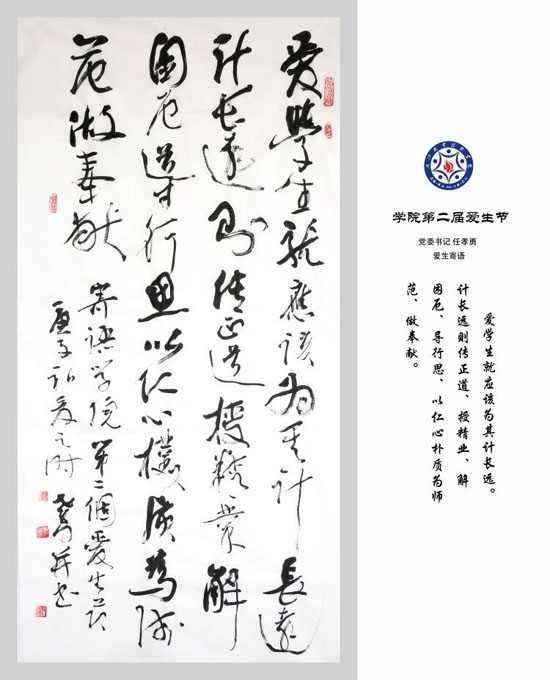 爱学生就應该为其计長遠
计长远则传正道授精業解
困厄導行思以仁心樸质為师
范做奉献
寄語学院第二個爱生节
学院第二届爱生节
党委书记 任孝勇
爱生寄语
爱学生就应该为其计长远。
计长远则传正道、授精业、解
困厄、导行思、以仁心朴质为师
范、做奉献。